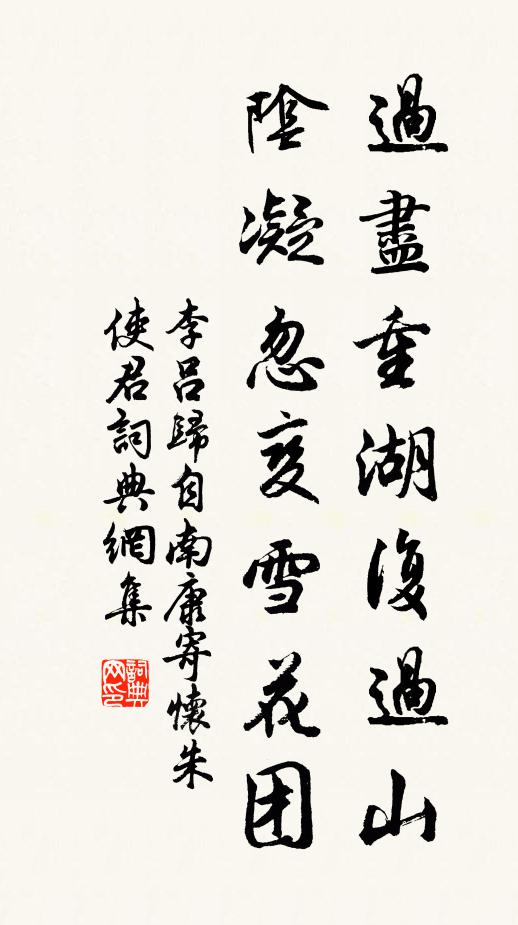 過盡重湖復過山
陰凝忽变雪花团
李吕歸自南康寄懷朱
使君詞典網集
詞典网印